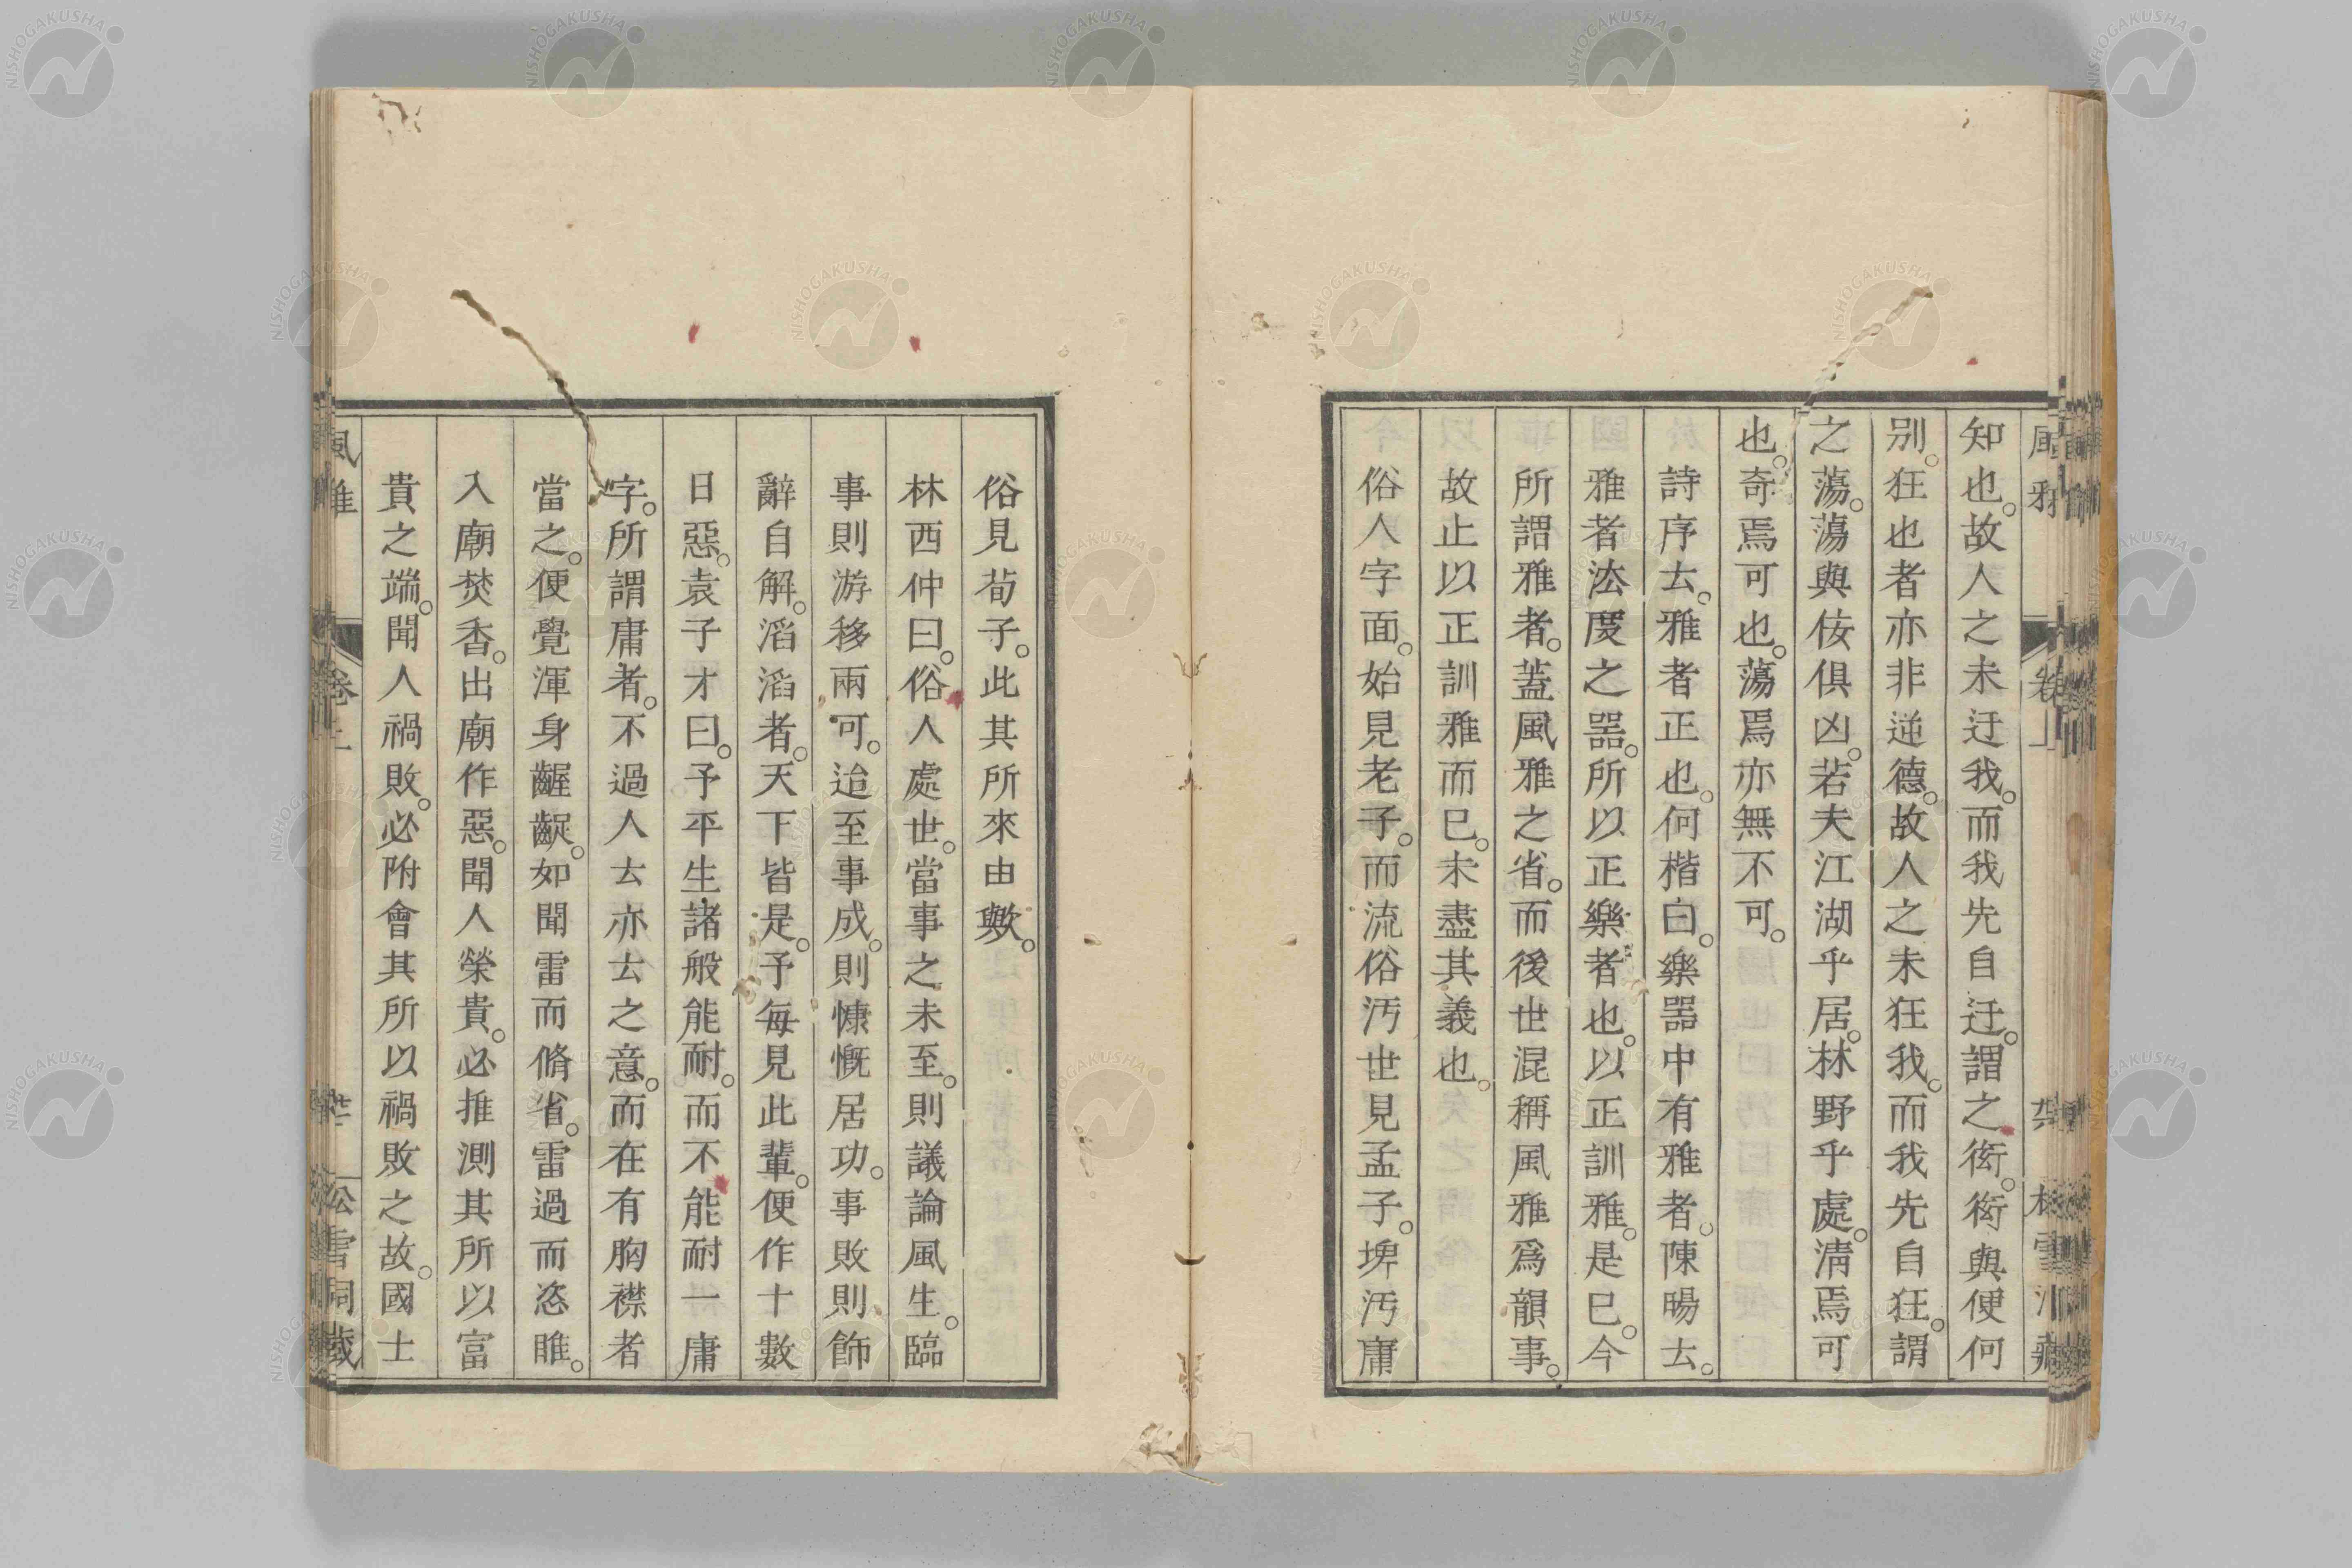 知也。故人之未迂我。而我先自迂。謂之衒。衒與便何
別。狂也者亦非逆德。故人之未狂我。而我先自狂。謂
之蕩。蕩與侫俱凶。若夫江湖乎居。林野乎處。淸焉可
也。奇焉可也。蕩焉亦無不可。
詩序云。雅者正也。何楷曰。樂器中有雅者。陳暘云。
雅者法度之器。所以正樂者也。以正訓雅。是已。今
所謂雅者。蓋風雅之省。而後世混稱風雅爲韻事。
故止以正訓雅而已。未盡其義也。
俗人字面。始見老子。而流俗汚世見孟子。埤汚庸
俗見荀子。此其所來由歟。
林西仲曰。俗人處世。當事之未至。則議論風生。臨
事則游移兩可。迨至事成。則慷慨居功。事敗則飾
辭自解。滔滔者。天下皆是。予每見此輩。便作十數
日惡。袁子才曰。予平生諸般能耐。而不能耐一庸
字。所謂庸者。不過人云亦云之意。而在有胸襟者
當之。便覺渾身齷齪。如聞雷而脩省。雷過而恣睢。
入廟焚香。出廟作惡。聞人榮貴。必推測其所以富
貴之端。聞人禍敗。必附會其所以禍敗之故。國士
風雅
卷上
松雪洞藏